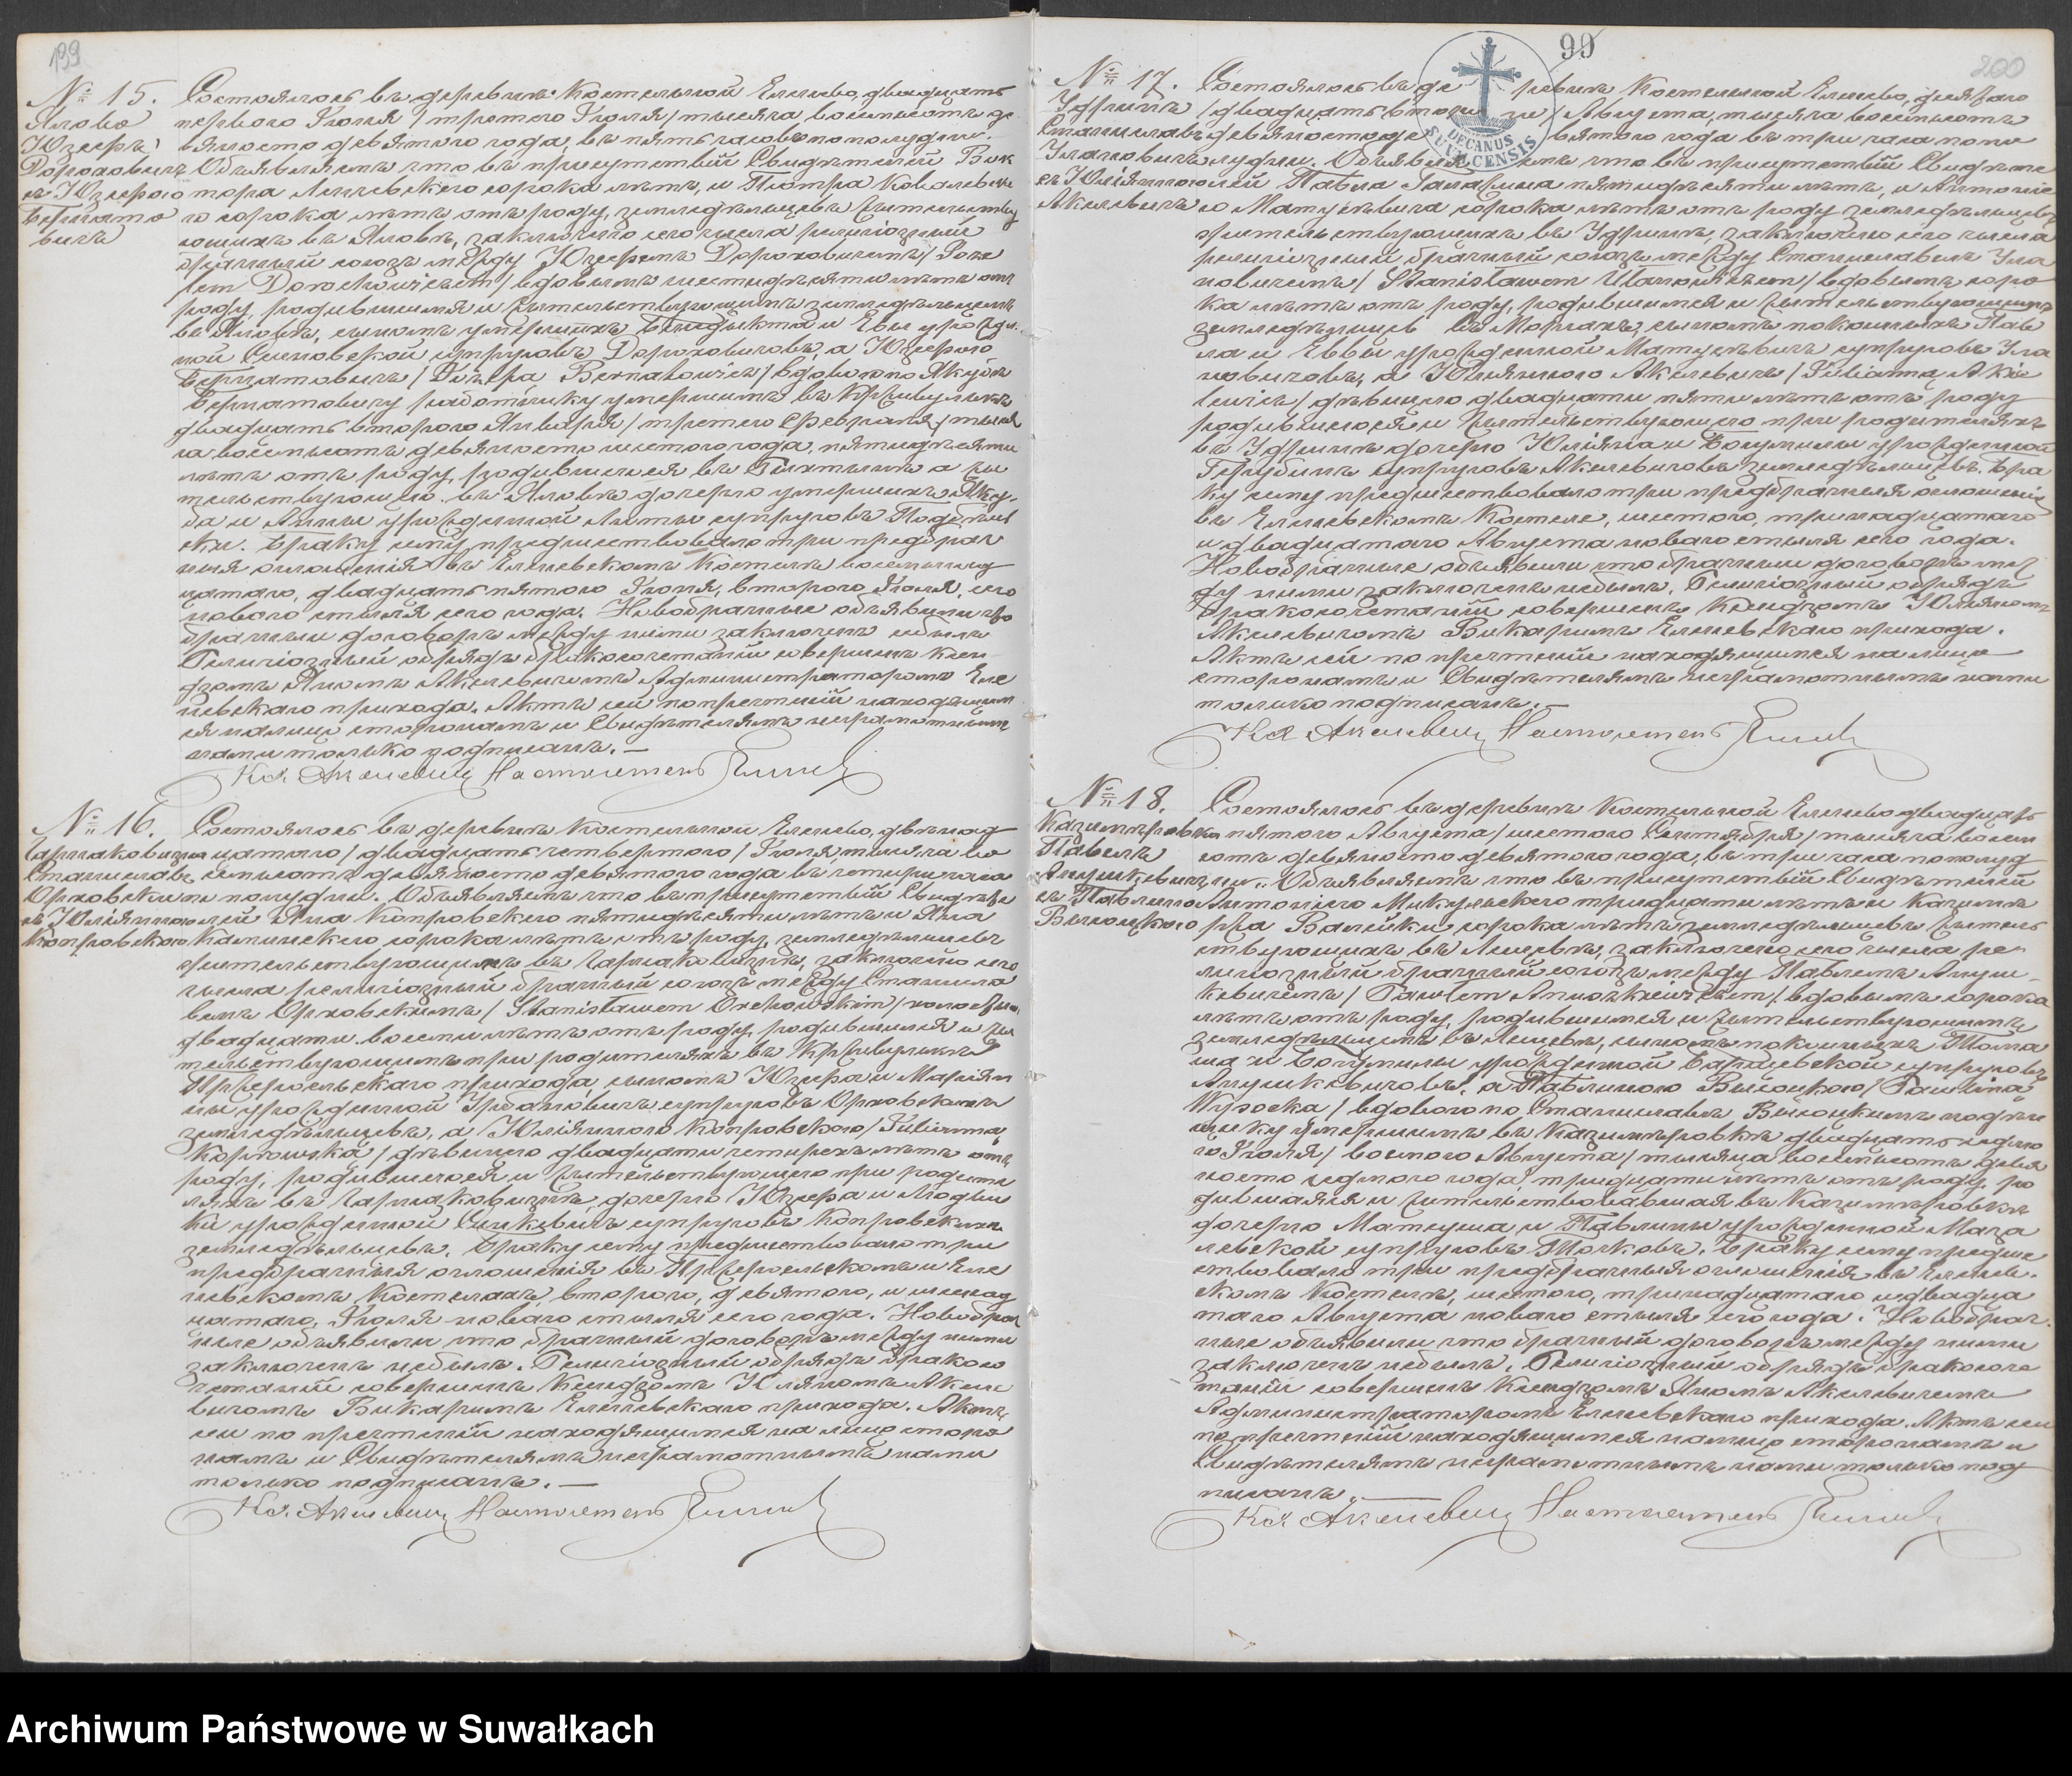 199
№ 15.
Ялово
Юзефъ
Дороховичъ
съ Юзефою
Бернато
вичъ
Состоялось въ деревнѣ Костельной Еленево, двадцать
перваго Іюля / третьего Іюля / тысяча восемьсотъ де
вяносто девятого года, въ пять часовъ пополудни.
Объявляемъ что въ присутствіи Свидѣтелей Вик
тора сорока лѣтъ, и Піотра Ковалевска
го сорока лѣтъ отъ роду, земледѣльцевъ жительству
ющихъ въ Яловѣ, заключено сего числа религіозный
брачный союзъ между Юзефомъ Дороховичемъ / Józe
fem Dorochowiczem / вдовымъ шестидесяти лѣтъ отъ
роду, родившимся и жительствующимъ земледѣльцемъ
въ Яловѣ, сыномъ умершихъ Бенедыкта и Евы урожден
ной супруговъ Дороховичовъ, а Юзефою
Бернатовичъ / Józefa Bernatowicz / вдовою по Якубѣ
Бернатовичу работнику умершемъ въ Кржывулькѣ
двадцать второго Января / третьего Февраля / тыся
ча восемьсотъ девяносто шестого года, пятидесяти
лѣтъ отъ роду, родившеюся въ а жи
тельствующею въ Яловѣ дочерью умершихъ Яку-
ба и Анны урожденной супруговъ
Браку сему предшествовало три предбрач
ныя оглошенія въ Еленевскомъ Костелѣ восемнад
цатаго, двадцать пятого Іюня, второго Іюля, сего
нового стиля сего года. Новобрачные объявили что
брачный договоръ между ними заключенъ небылъ
Религіозный обрядъ бракосочетанія совершенъ Ксен
дзомъ Яномъ Акелевичемъ Администраторомъ Еле
невскаго прихода. Актъ сей по прочтеніи находящим
ся налицо сторонамъ и Свидѣтелямъ неграмотнымъ
нами только подписанъ. —
Кс. Акелевичъ Настоятель
№ 16.
Чарнаковизна
Станиславъ
Ореховскій
съ Юліянною
Копровскою
Состоялось въ деревнѣ Костельной Еленево, двѣнад
цатаго / двадцать четвертого / Іюля, тысяча во
семьсотъ девяносто девятого года въ четыри часа
по полудни. Объявляемъ что въ присутствіи Свидѣте
лей Яна Копровскаго пятидесяти лѣтъ и Яна
Каминскаго сорока лѣтъ отъ роду, земледѣльцевъ
жительствующихъ въ Чарнаковизнѣ, заключено сего
числа религіозный брачный союзъ между Станисла
вомъ Ореховскимъ / Stanisławem Orechowskim / холостымъ
двадцати восьми лѣтъ отъ роду, родившимся и жи
тельствующимъ при родителяхъ въ Кржывулькѣ
Пржеросльскаго прихода, сыномъ Юзефа и Маріян
ны урожденной Урбановичъ супруговъ Ореховскихъ
земледѣльцевъ, а Юліянною Копровскою / Julianna
Koprowska / дѣвицею двадцати четырехъ лѣтъ отъ
роду, родившеюся и жительствующею при родите
ляхъ въ Чарнаковизнѣ, дочерью Юзефа и Людви
ки урожденной супруговъ Копровскихъ
земледѣльцевъ. Браку сему предшествовало три
предбрачныя оглошенія въ Пржеросльскомъ и Еле
невскомъ Костелахъ, второго, девятого, и шестнад
цатаго, Іюля новаго стиля сего года. Новобрач
ные объявили что брачный договоръ между ними
заключенъ небылъ. Религіозный обрядъ бракосо
четанія совершенъ Ксендзомъ Юліяномъ Акеле
вичомъ Викарымъ Еленевскаго прихода. Актъ
сей по прочтеніи находящимся на лицо сторо
намъ и Свидѣтелямъ неграмотнымъ нами
только подписанъ. —
Кс. Акелевичъ Настоятель
99
200
DECANUS
SUVALCENSIS
№ 17.
Удрынъ
Станиславъ
Улановичъ
съ Юліянною
Акелевичъ
Состоялось въ де ревнѣ Костельной Еленево, десятого
/ двадцать второго / Августа, тысяча восемьсотъ
девяносто де вятого года въ три часа попо
лудни. Объявляемъ что въ присутствіи Свидѣте
лей Павла пятидесяти лѣтъ, и Антоніе
го Матусевича сорока лѣтъ отъ роду земледѣльцевъ
жительствующихъ въ Удрынѣ, заключено сего числа
религіозный брачный союзъ между Станиславомъ Ула
новичемъ / Stanisławem Ułanowiczem / вдовымъ соро
ка лѣтъ отъ роду, родившимся и жительствующимъ
земледѣльцемъ въ сыномъ покойныхъ Пав
ла и Еввы урожденной Матусевичъ супруговъ Ула
новичовъ, а Юліянною Акелевичъ / Julianną Akie
lewicz / дѣвицею двадцати пяти лѣтъ отъ роду
родившеюся и жительствующею при родителяхъ
въ Удрынѣ дочерью Юліяна и Богумилы урожденной
супруговъ Акелевичовъ земледѣльцевъ. Бра
ку сему предшествовало три предбрачныя оглошенія
въ Еленевскомъ Костеле, шестого, тринадцатаго
и двадцатаго Августа новаго стиля сего года.
Новобрачные объявили что брачный договоръ меж
ду ними заключенъ небылъ. Религіозный обрядъ
бракосочетанія совершенъ Ксендзомъ Юліяномъ
Акелевичомъ Викарымъ Еленевскаго прихода.
Актъ сей по прочтеніи находящимся на лицо
сторонамъ и Свидѣтелямъ неграмотнымъ нами
только подписанъ. —
Кс. Акелевичъ Настоятель
№ 18.
Казимѣровка
Павелъ
Анушкевичъ
съ Павлиною
Высоцкою
Состоялось въ деревнѣ Костельной Еленево двадцать
пятого Августа / шестого Сентября / тысяча восемь
сотъ девяносто девятого года, въ три часа пополуд
ни. Объявляемъ что въ присутствіи Свидѣтелей
Антонього Микульскаго тридцати лѣтъ и Казими
ра сорока лѣтъ земледѣльцевъ житель
ствующихъ въ заключено сего числа ре
лигіозный брачный союзъ между Павломъ Ануш
кевичемъ / Pawłem Annuszkiewiczem / вдовымъ сорока
лѣтъ отъ роду, родившимся и жительствующимъ
земледѣльцемъ въ сыномъ покойныхъ Тома
ша и Богумилы урожденной супруговъ
Анушкевичовъ, а Павлиною Высоцкою / Pawlina
Wysocka / вдовою по Станиславѣ Высоцкимъ поден
щику умершимъ въ Казимѣровкѣ двадцать седмо
го Іюля / восьмого Августа / тысяча восемьсотъ девя
носто седмого года тридцати лѣтъ отъ роду, ро
дившаяся и жительствовавшая въ Казимѣровкѣ
дочерью Матеуша и Павлины урожденной
супруговъ Браку сему предше
ствовало три предбрачныя оглошенія въ Еленев-
скомъ Костелѣ, шестого, тринадцатаго и двадца
таго Августа новаго стиля сего года. Новобрач
ные объявили что брачный договоръ между ними
заключенъ небылъ. Религіозный обрядъ бракосоче
танія совершенъ Ксендзомъ Яномъ Акелевичемъ
Администраторомъ Еленевскаго прихода. Актъ сей
по прочтеніи находящимся налицо сторонамъ и
Свидѣтелямъ неграмотнымъ нами только под
писанъ. —
Кс. Акелевичъ Настоятель
Archiwum Państwowe w Suwałkach